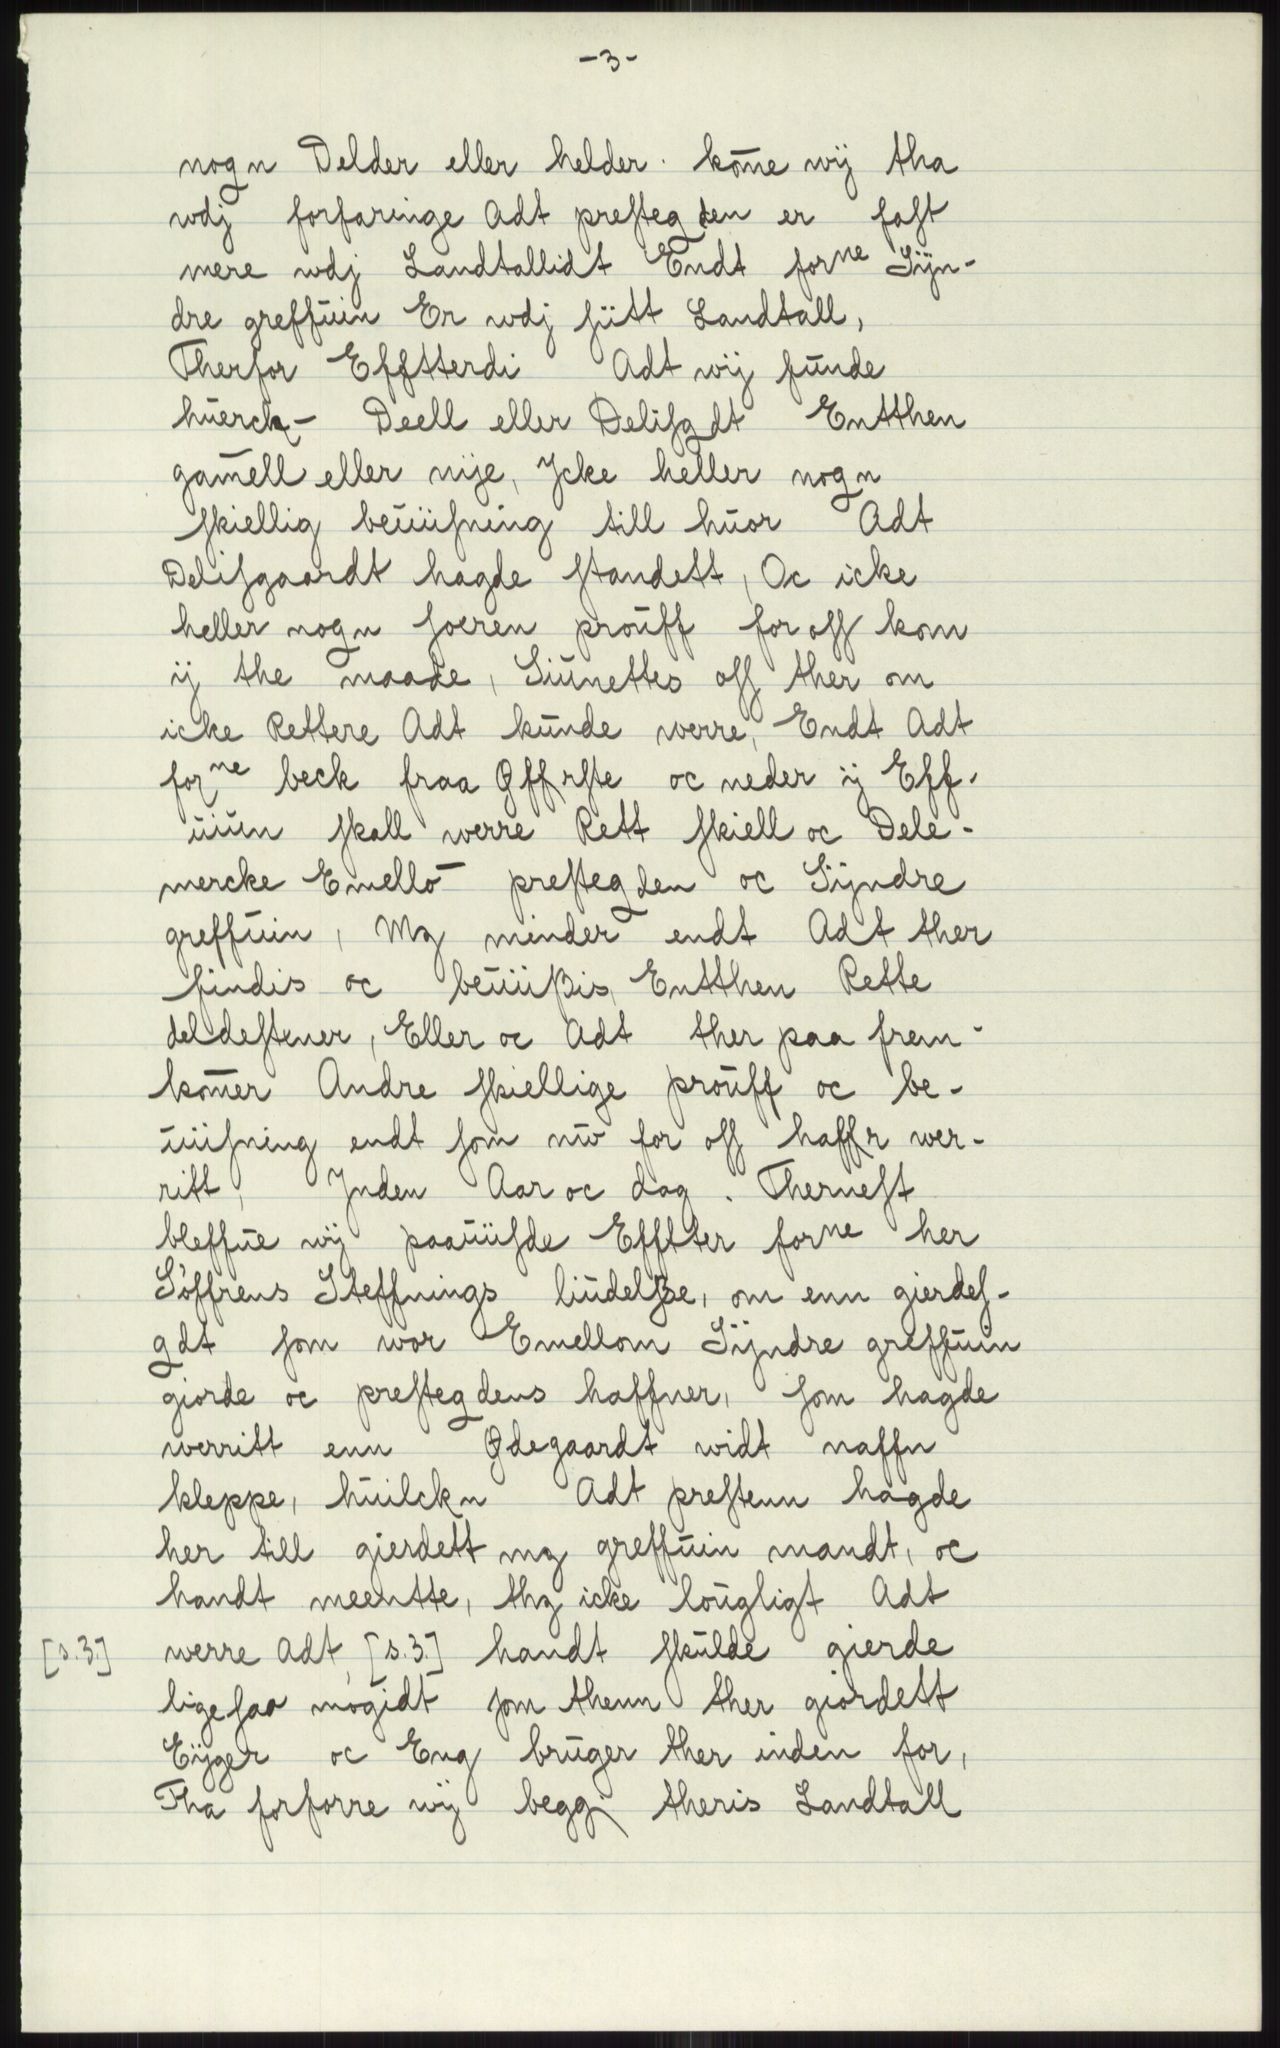 -3-
nogn Delder eller helder. kom̄e wij tha
wdj forfaringe Adt presteg den er fast
mere wdj Landtallidt Endt forne Sÿn-
dre greffuin Er wdj siitt Landtall,
Therfor Effterdi Adt wij funde
huerck- Deell eller Delisgdt Entthen
gam̄ell eller nije, Jcke heller nogn
skiellig beuiisning till huor Adt
Delisgaardt hagde standett, Oc icke
heller nogn soeren prouff for oss kom
ij the maade, Siunettes oss ther om
icke Rettere Adt kunde werre, Endt Adt
forne beck fraa Øffrste oc neder ij Eff-
uiun skall werre Rett skiell oc Dele-
mercke Emello- presteg den oc Sÿndre
greffuin, Mz minder endt Adt ther
findis oc beuiißis Entthen Rette
deldestener, Eller oc Adt ther paa frem-
kom̄er Andre skiellige prouff oc be-
uiisning endt som nw for oss haffr wer-
ritt, Jnden Aar oc dag. Thernest
bleffue wij paauiisde Effter forne her
Söffrens Steffnings liudelße, om enn gierdes-
gdt som wor Emellom Sÿndre greffuin
giorde oc presteg dens haffner, som hagde
werritt enn Ødegaardt widt naffn
kleppe, huilckn Adt prestenn hagde
her till gierdett mz greffuin mandt, oc
handt meentte, thz icke lougligt Adt
[s.3.] werre Adt, [s.3.] handt skulde gierde
lige saa mögidt som thenn ther giordett
Eÿger oc Eng bruger ther inden for,
Tha forforre wij begg theris Landtall